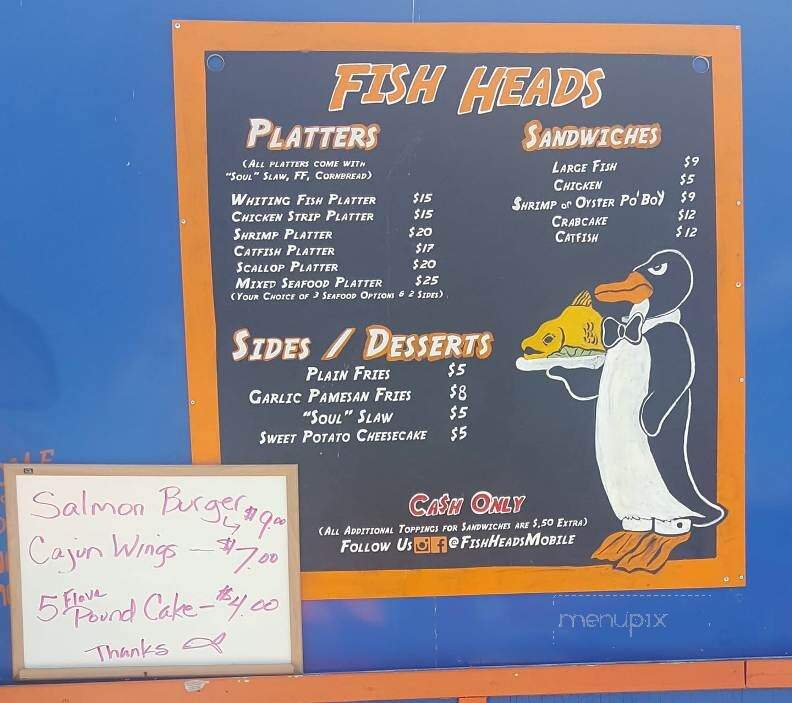 FISH HEADS
PLATTERS
(ALL PLATTERS COME WITH
"SOUL" SLAW, FF, CORNBREAD)
WHITING FISH PLATTER $15
CHICKEN STRIP PLATTER $15
SHRIMP PLATTER $20
CATFISH PLATTER $17
SCALLOP PLATTER $20
MIXED SEAFOOD PLATTER $25
(YOUR CHOICE OF 3 SEAFOOD OPTIONS & 2 SIDES)
SANDWICHES
LARGE FISH $9
CHICKEN $5
SHRIMP or OYSTER PO'BOY $9
CRABCAKE $12
CATFISH $12
SIDES / DESSERTS
PLAIN FRIES $5
GARLIC PAMESAN FRIES $8
"SOUL" SLAW $5
SWEET POTATO CHEESECAKE $5
CA$H ONLY
(ALL ADDITIONAL TOPPINGS FOR SANDWICHES ARE $.50 EXTRA)
FOLLOW US @FISHHEADSMOBILE
Salmon Burger $9.00
Cajun Wings - $7.00
5 Flava Pound Cake - $4.00
Thanks
menupix